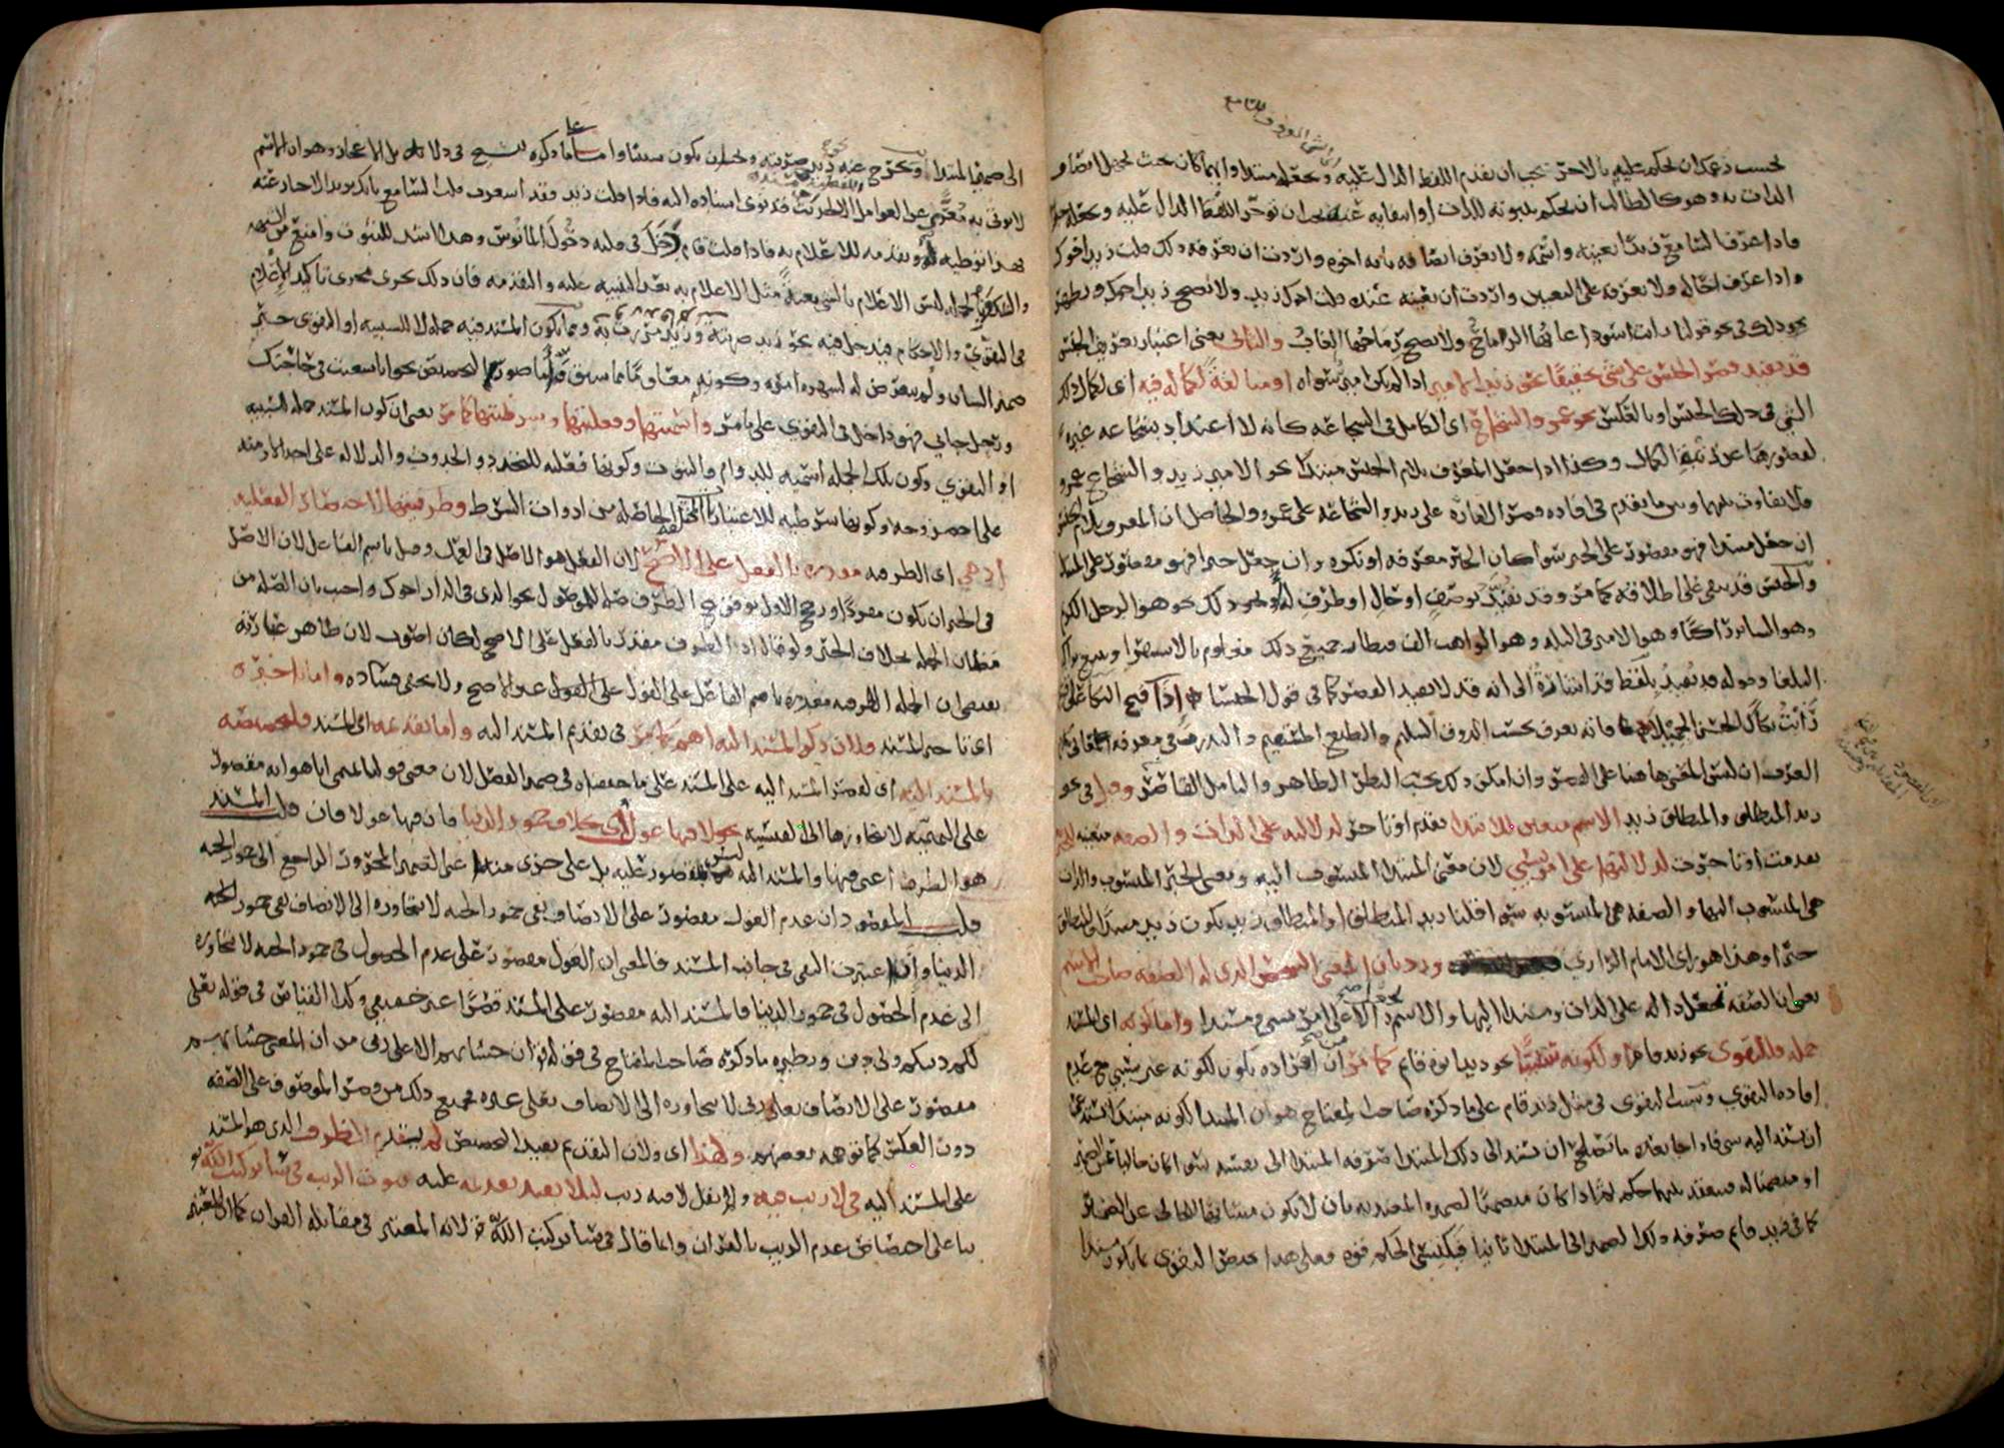 اى الشى المعروف للسامع
يحسب زعمك ان يحكم عليه بالاخر يجب ان يقدم اللفظ الدال عليه ويجعله مبتدا وايهما كان بحيث يجهل اتصاف
الذات به وهو كالطالب ان يحكم بثبوته للذات او انتفايه عنه يجب ان تؤخر اللفظ الدال عليه وتجعله خبرا
فاذا عرف السامع زيدا بعينه واسمه ولا يعرف اتصافه بانه اخوه واردت ان تعرفه ذلك قلت زيد اخوك
واذا عرف اخا له ولا يعرفه على التعيين واردت ان تعينه عنده قلت اخوك زيد ولا يصح زيد اخوك ويظهر
ذلك فى نحو قولنا رايت اسودا غابها الرماح ولا يصح رماحها الغاب والثانى يعنى اعتبار تعريف الجنس
قد يفيد قصر الجنس على شى تحقيقا نحو زيد الامير اذا لم يكن امير سواه او مبالغة لكماله فيه اى لكمال ذلك
الشى فى ذلك الجنس او بالعكس نحو عمرو الشجاع اى الكامل فى الشجاعة كانه لا اعتداد بشجاعة غيره
لقصورها عن رتبة الكمال وكذا اذا جعل المعرف بلام الجنس مبتدا نحو الامير زيد والشجاع عمرو
ولا تفاوت بينهما وبين ما تقدم فى افادة قصر الامارة على زيد والشجاعة على عمرو والحاصل ان المعرف بلام الجنس
ان جعل مبتدا فهو مقصور على الخبر سوا كان الخبر معرفة او نكرة وان جعل خبرا فهو مقصور على المبتدا
والجنس قد يبقى على اطلاقه كما مر وقد يقيد بوصف او حال او ظرف او نحو ذلك نحو هو الرجل الكريم
وهو الساير راكبا وهو الامير فى البلد وهو الواهب الف قنطار جميع ذلك معلوم بالاستقرا وتصفح تراكيب
البلغا وقوله قد يفيد بلفظ قد اشارة الى انه قد لا يفيد القصر كما فى قول الخنسا اذا قبح البكا على قتيل
رايت بكاك الحسن الجميلا فانه يعرف بحسب الذوق السليم والطبع المستقيم والتدرب فى معرفة معانى كلام
العرب ان ليس المعنى هاهنا على القصر وان امكن ذلك بحسب النظر الظاهر والتامل القاصر وقيل فى نحو
زيد المنطلق والمنطلق زيد الاسم متعين للابتدا تقدم او تاخر لدلالته على الذات والصفة متعينة للخبرية
تقدمت او تاخرت لدلالتها على امر نسبى لان معنى المبتدا المنسوب اليه ومعنى الخبر المنسوب والذات
هى المنسوب اليها والصفة هى المنسوبة سوا قلنا زيد المنطلق او المنطلق زيد يكون زيد مبتدا والمنطلق
خبرا وهذا هو راى الامام الرازي ورد بان المعنى الشخص الذى له الصفة صاحب الاسم
يعنى ان الصفة تجعل دالة على الذات ومسندا اليها والاسم دالا على امر نسبى ومسندا واما كونه اى المسند
جملة فللتقوى نحو زيد قام او لكونه سببيا نحو زيد ابوه قايم كما مر من ان افراده يكون لكونه غير سببى مع عدم
افادة التقوى وسبب التقوى فى مثل زيد قام على ما ذكره صاحب المفتاح هو ان المبتدا لكونه مبتدا يستدعى
ان يسند اليه شى فاذا جا بعده ما يصلح ان يسند الى ذلك المبتدا صرفه المبتدا الى نفسه سوا كان خاليا عن الضمير
او متضمنا له فينعقد بينهما حكم ثم اذا كان متضمنا لضميره المعتد به بان لا يكون مشابها للخالى عن الضمير
كما فى زيد قايم صرفه ذلك الضمير الى المبتدا ثانيا فيكتسى الحكم قوة فعلى هذا يختص التقوى بما يكون مسندا
الى ضمير المبتدا ويخرج عنه نحو زيد ضربته ويجب ان يكون سببيا واما على ما ذكره الشيخ فى دلايل الاعجاز وهو ان الاسم
لا يوتى به معرى عن العوامل اللفظية الا لحديث قد نوى اسناده اليه فاذا قلت زيد فقد اشعرت قلب السامع بانك تريد الاخبار عنه
فهذا توطية له وتقدمة للاعلام به فاذا قلت قام دخل فى قلبه دخول المانوس وهذا اشد للثبوت وامنع من الشبهة
والشك وبالجملة ليس الاعلام بالشى بغتة مثل الاعلام به بعد التنبيه عليه والتقدمة فان ذلك يجرى مجرى تاكيد الاعلام
فى التقوى والاحكام فيدخل فيه نحو زيد ضربته وزيد مررت به ومما يكون المسند فيه جملة لا للسببية او التقوى خبر
ضمير الشان ولم يتعرض له لشهرة امره وكونه معلوما مما سبق واما صورة التخصيص نحو انا سعيت فى حاجتك
ورجل جاني فهو داخل فى التقوى على ما مر واسميتها وفعليتها وشرطيتها لما مر يعنى ان كون المسند جملة للسببية
او التقوى وكون تلك الجملة اسمية للدوام والثبوت وكونها فعلية للتجدد والحدوث والدلالة على احد الازمنة
على اخصر وجه وكونها شرطية للاعتبارات المختلفة الحاصلة من ادوات الشرط وظرفيتها لاختصار الفعلية
اذ هى اى الظرفية مقدرة بالفعل على الاصح لان الفعل هو الاصل فى العمل وقيل باسم الفاعل لان الاصل
فى الخبر ان يكون مفردا ورجح الاول بوقوع الظرف صلة للموصول نحو الذى فى الدار اخوك واجيب بان الصلة من
مظان الجملة بخلاف الخبر ولو قال اذ الظرف مقدر بالفعل على الاصح لكان اصوب لان ظاهر عبارته
يقتضى ان الجملة الظرفية مقدرة باسم الفاعل على القول على القول غير الاصح ولا يخفى فساده واما تاخيره
اى تاخير المسند فلان ذكر المسند اليه اهم كما مر فى تقديم المسند اليه واما تقديمه اى المسند فلتخصيصه
بالمسند اليه اى لقصر المسند اليه على المسند على ما حققناه فى ضمير الفصل لان معنى قولنا تميمى انا هو انه مقصور
على التميمية لا يتجاوزها الى القيسية نحو لا فيها غول اى بخلاف خمور الدنيا فان فيها غولا فان قلت المسند
هو الظرف اعنى فيها والمسند اليه ليس بمقصور عليه بل على جزء منه اعنى الضمير المجرور الراجع الى خمور الجنة
قلت المقصود ان عدم الغول مقصور على الاتصاف بفى خمور الجنة لا يتجاوزه الى الاتصاف بفى خمور
الدنيا وان اعتبرت النفى فى جانب المسند فالمعنى ان الغول مقصور على عدم الحصول فى خمور الجنة لا يتجاوزه
الى عدم الحصول فى خمور الدنيا فالمسند اليه مقصور على المسند قصرا غير حقيقى وكذا القياس فى قوله تعلى
لكم دينكم ولى دين ونظيره ما ذكره صاحب المفتاح فى قوله ان حسابهم الا على ربى من ان المعنى حسابهم
مقصور على الاتصاف بعلى ربى لا يتجاوزه الى الاتصاف بعلى غيره فجميع ذلك من قصر الموصوف على الصفة
دون العكس كما توهمه بعضهم ولهذا اى ولان التقديم يفيد التخصيص لم يقدم الظرف الذى هو المسند
على المسند اليه فى لا ريب فيه ولم يقل لا فيه ريب ليلا يفيد تقديمه عليه ثبوت الريب فى ساير كتب الله تع
بنا على اختصاص عدم الريب بالقران وانما قال فى ساير كتب الله تع لانه المعتبر فى مقابلة القران كما ان المعتبر